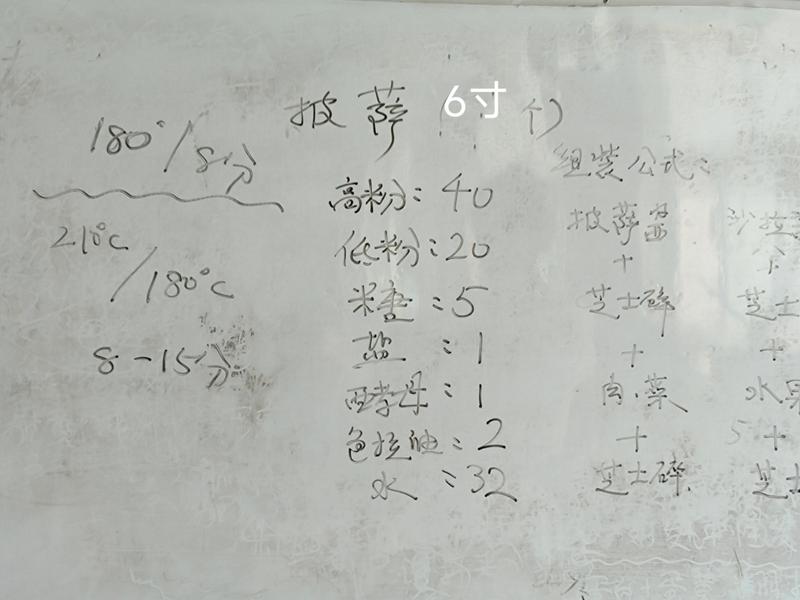 披萨(6寸 个)
180°/8分
210℃
/180℃
8-15分
高粉:40
低粉:20
米唐:5
盐:1
酵母:1
色拉油:2
水:32
组装公式:
披萨酱
+
芝士碎
+
肉、菜
+
芝士碎
沙拉
+
芝士
+
水果
+
芝士